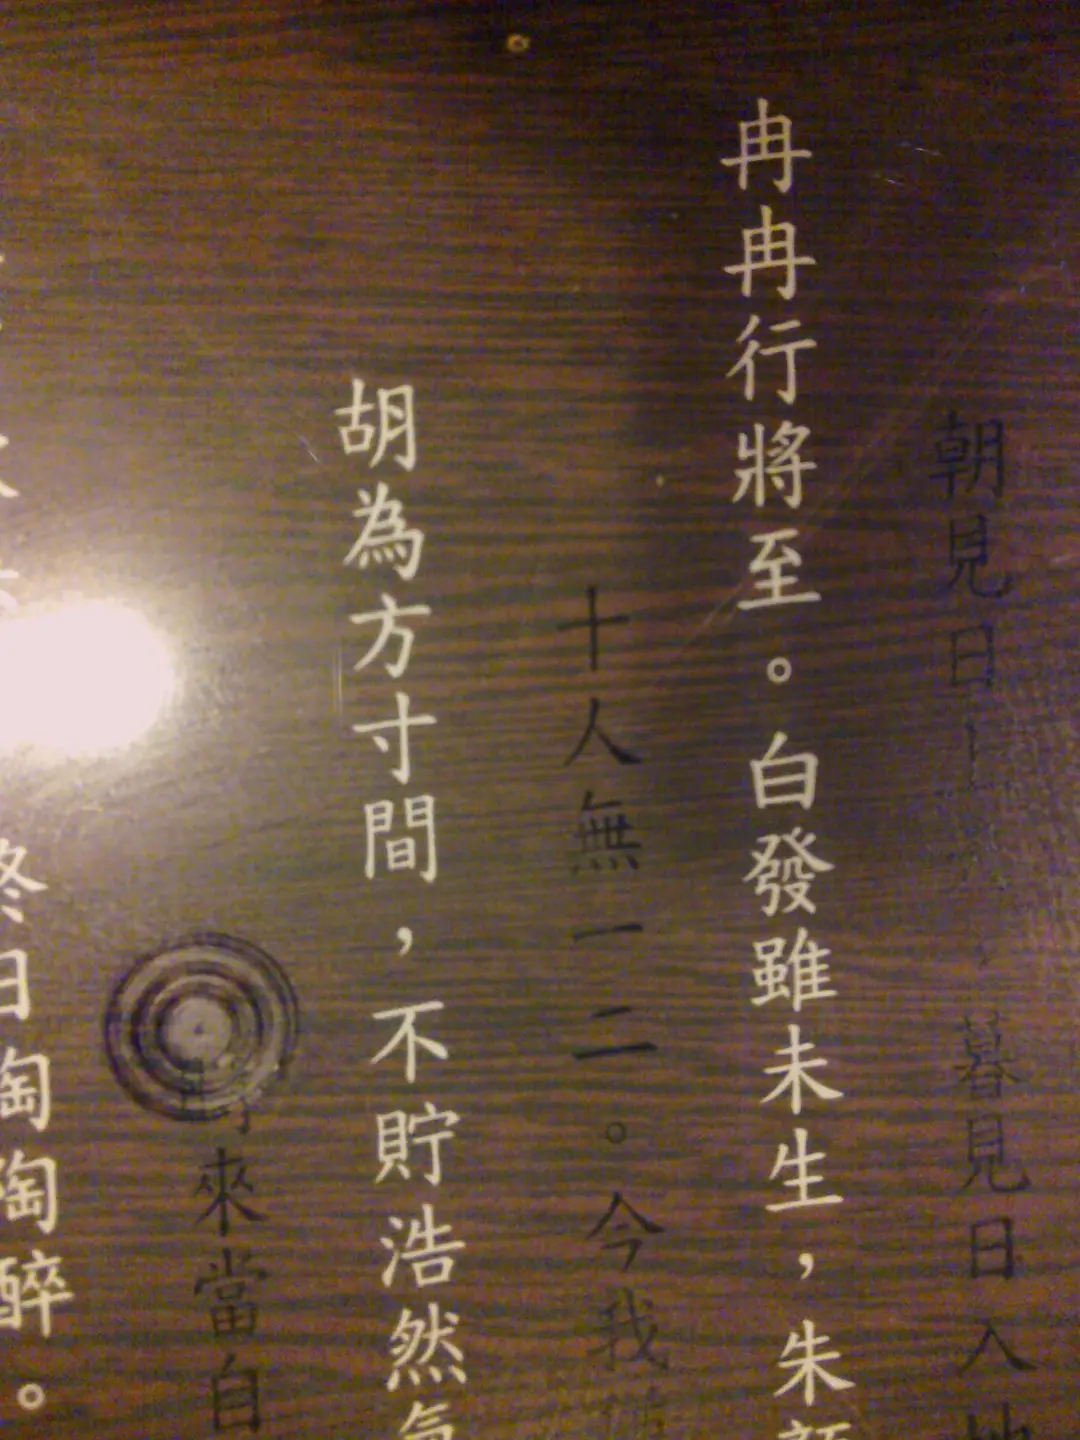 朝見日 暮見日入
冉冉行將至。白發雖未生，朱
十人無一二。今我
胡為方寸間，不貯浩然
來當自
終日陶陶醉。